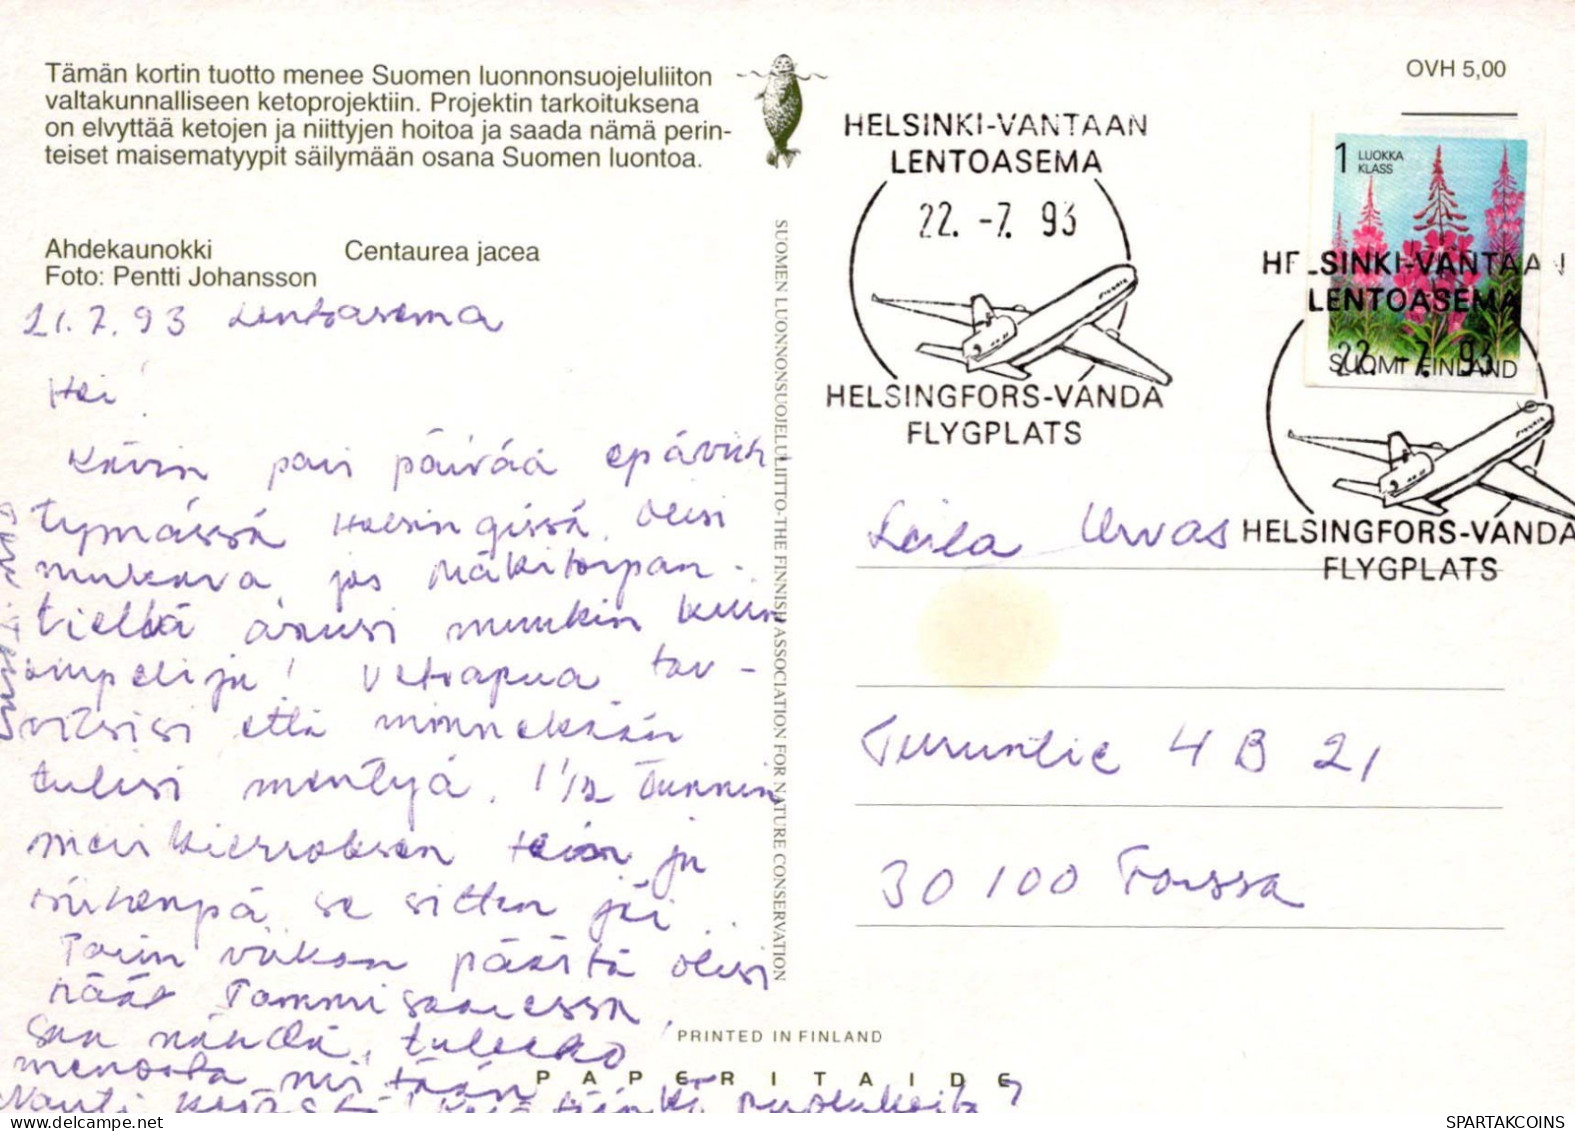 Tämän kortin tuotto menee Suomen luonnonsuojeluliiton
valtakunnalliseen ketoprojektiin. Projektin tarkoituksena
on elvyttää ketojen ja niittyjen hoitoa ja saada nämä perin-
teiset maisematyypit säilymään osana Suomen luontoa.
Ahdekaunokki Centaurea jacea
Foto: Pentti Johansson
21.7.93 Lentoasema
Hei!
Kävin pari päivää epäviih
tymässä Helsingissä. Olisi
mukava, jos Mäkitorpan-
tiellä asuisi muukin kuin
ompelija! Vetoapua tar-
vitsisi että minnekään
tulisi mentyä. 1 1/2 tunnin
kierroksen tein ja
se sitten jäi.
Parin viikon päästä olisi
näät Tammisaaressa.
Saa nähdä, tuleeko
menosta niitään
Nauti kesästä!
SUOMEN LUONNONSUOJELULIITTO-THE FINNISH ASSOCIATION FOR NATURE CONSERVATION
PRINTED IN FINLAND
PAPERITAIDE
OVH 5,00
HELSINKI-VANTAAN
LENTOASEMA
22. -7. 93
Finnair
HELSINGFORS-VANDA
FLYGPLATS
1 LUOKKA
KLASS
SUOMI FINLAND
HELSINKI-VANTAAN
LENTOASEMA
22. -7. 93
Finnair
HELSINGFORS-VANDA
FLYGPLATS
Leila Urvas
Turuntie 4 B 21
30100 Forssa
SPARTAKCOINS